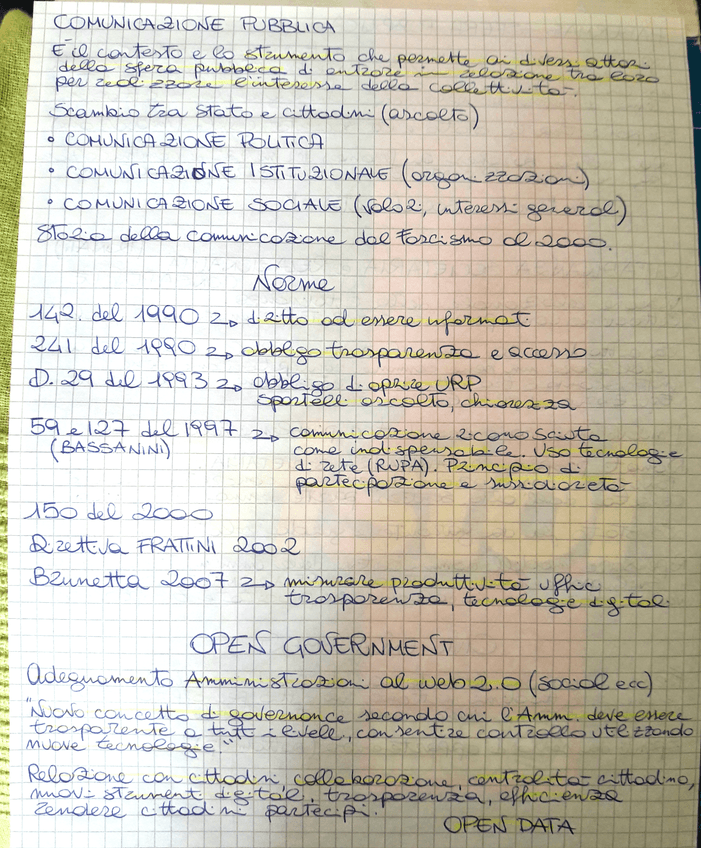 COMUNICAZIONE PUBBLICA
È il contesto e lo strumento che permette ai diversi attori
della sfera pubblica di entrare in relazione tra loro
per realizzare l'interesse della collettività.
Scambio tra Stato e cittadini (ascolto)
• COMUNICAZIONE POLITICA
• COMUNICAZIONE ISTITUZIONALE (organizzazioni)
• COMUNICAZIONE SOCIALE (valori, interessi generali)
Storia della comunicazione dal fascismo al 2000.
Norme
142. del 1990 → diritto ad essere informati
241 del 1990 → obbligo trasparenza e accesso
D. 29 del 1993 → obbligo di aprire URP
sportelli ascolto, chiarezza
59 e 127 del 1997 → comunicazione riconosciuta
(BASSANINI) come indispensabile. Uso tecnologie
di rete (RUPA). Principio di
partecipazione e sussidiarietà
150 del 2000
Direttiva FRATTINI 2002
Brunetta 2007 → misurare produttività uffici
trasparenza, tecnologie digitali
OPEN GOVERNMENT
Adeguamento Amministrazioni al web 2.0 (social ecc)
"Nuovo concetto di governance secondo cui l'Amm. deve essere
trasparente a tutti i livelli, consentire controllo utilizzando
nuove tecnologie."
Relazione con cittadini, collaborazione, centralità cittadino,
nuovi strumenti digitali, trasparenza, efficienza
rendere cittadini partecipi.
OPEN DATA